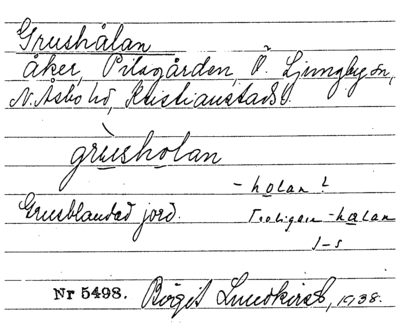 Grushålan
åker, Pilagården, Ö. Ljungby sn,
N. Åsbo hd, Kristianstads l.
grùsholan
- holan?
Grusblandad jord.
Troligen - halan
J-s
Nr 5498. Birgit Lundkvist, 1938.